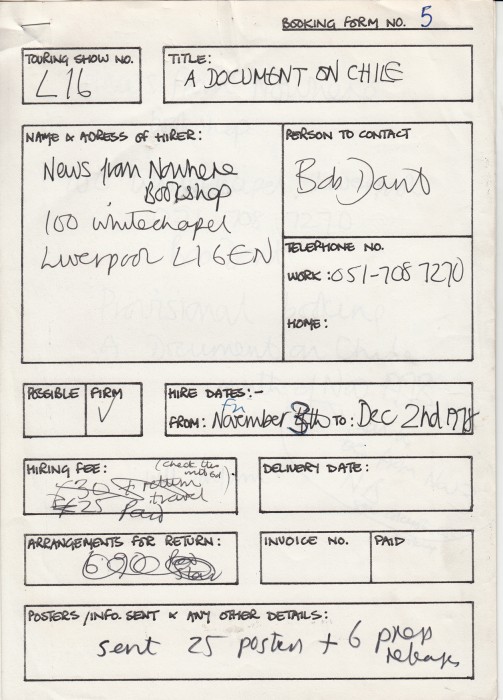 BOOKING FORM NO. 5
TOURING SHOW NO.
L16
TITLE:
A DOCUMENT ON CHILE
NAME & ADRESS OF HIRER:
News from Nowhere
Bookshop
100 Whitechapel
Liverpool L1 6EN
PERSON TO CONTACT
Bob Dant
TELEPHONE NO.
WORK: 051-708 7270
HOME:
POSSIBLE
FIRM
✓
HIRE DATES:-
Fri
FROM: November 3 TO: Dec 2nd 1978
HIRING FEE:
(check this
£30 + return
travel
£25 Paid
DELIVERY DATE:
ARRANGEMENTS FOR RETURN:
INVOICE NO.
PAID
POSTERS/INFO. SENT & ANY OTHER DETAILS:
sent 25 posters + 6 press
releases